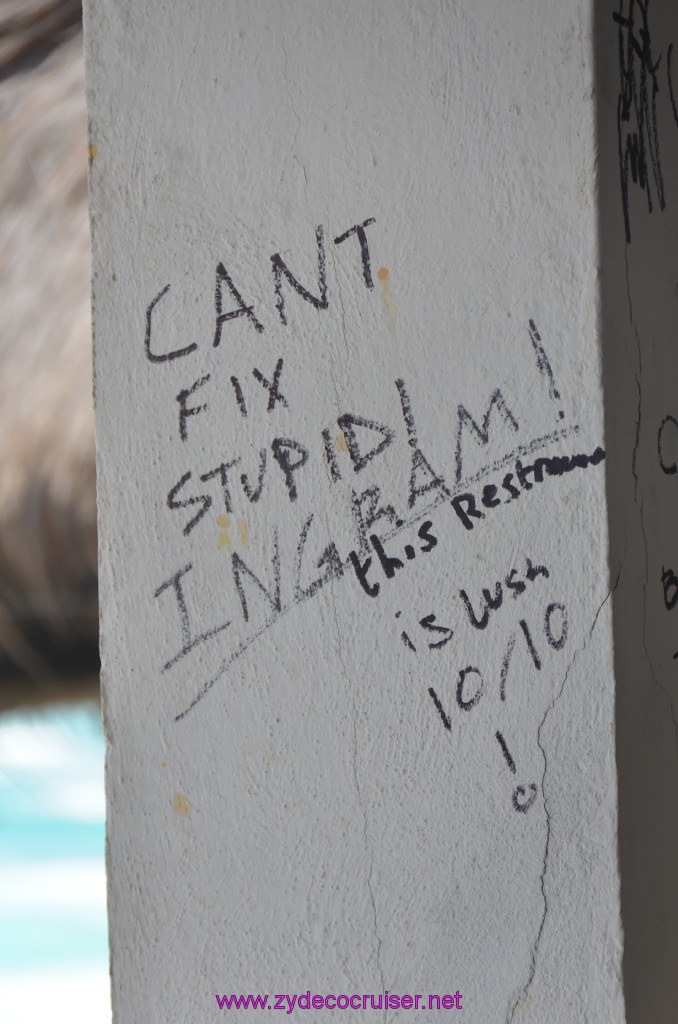 CANT
FIX
STUPID!
INGRAM!
this
is Lush
10/10
!
www.zydecocruiser.net